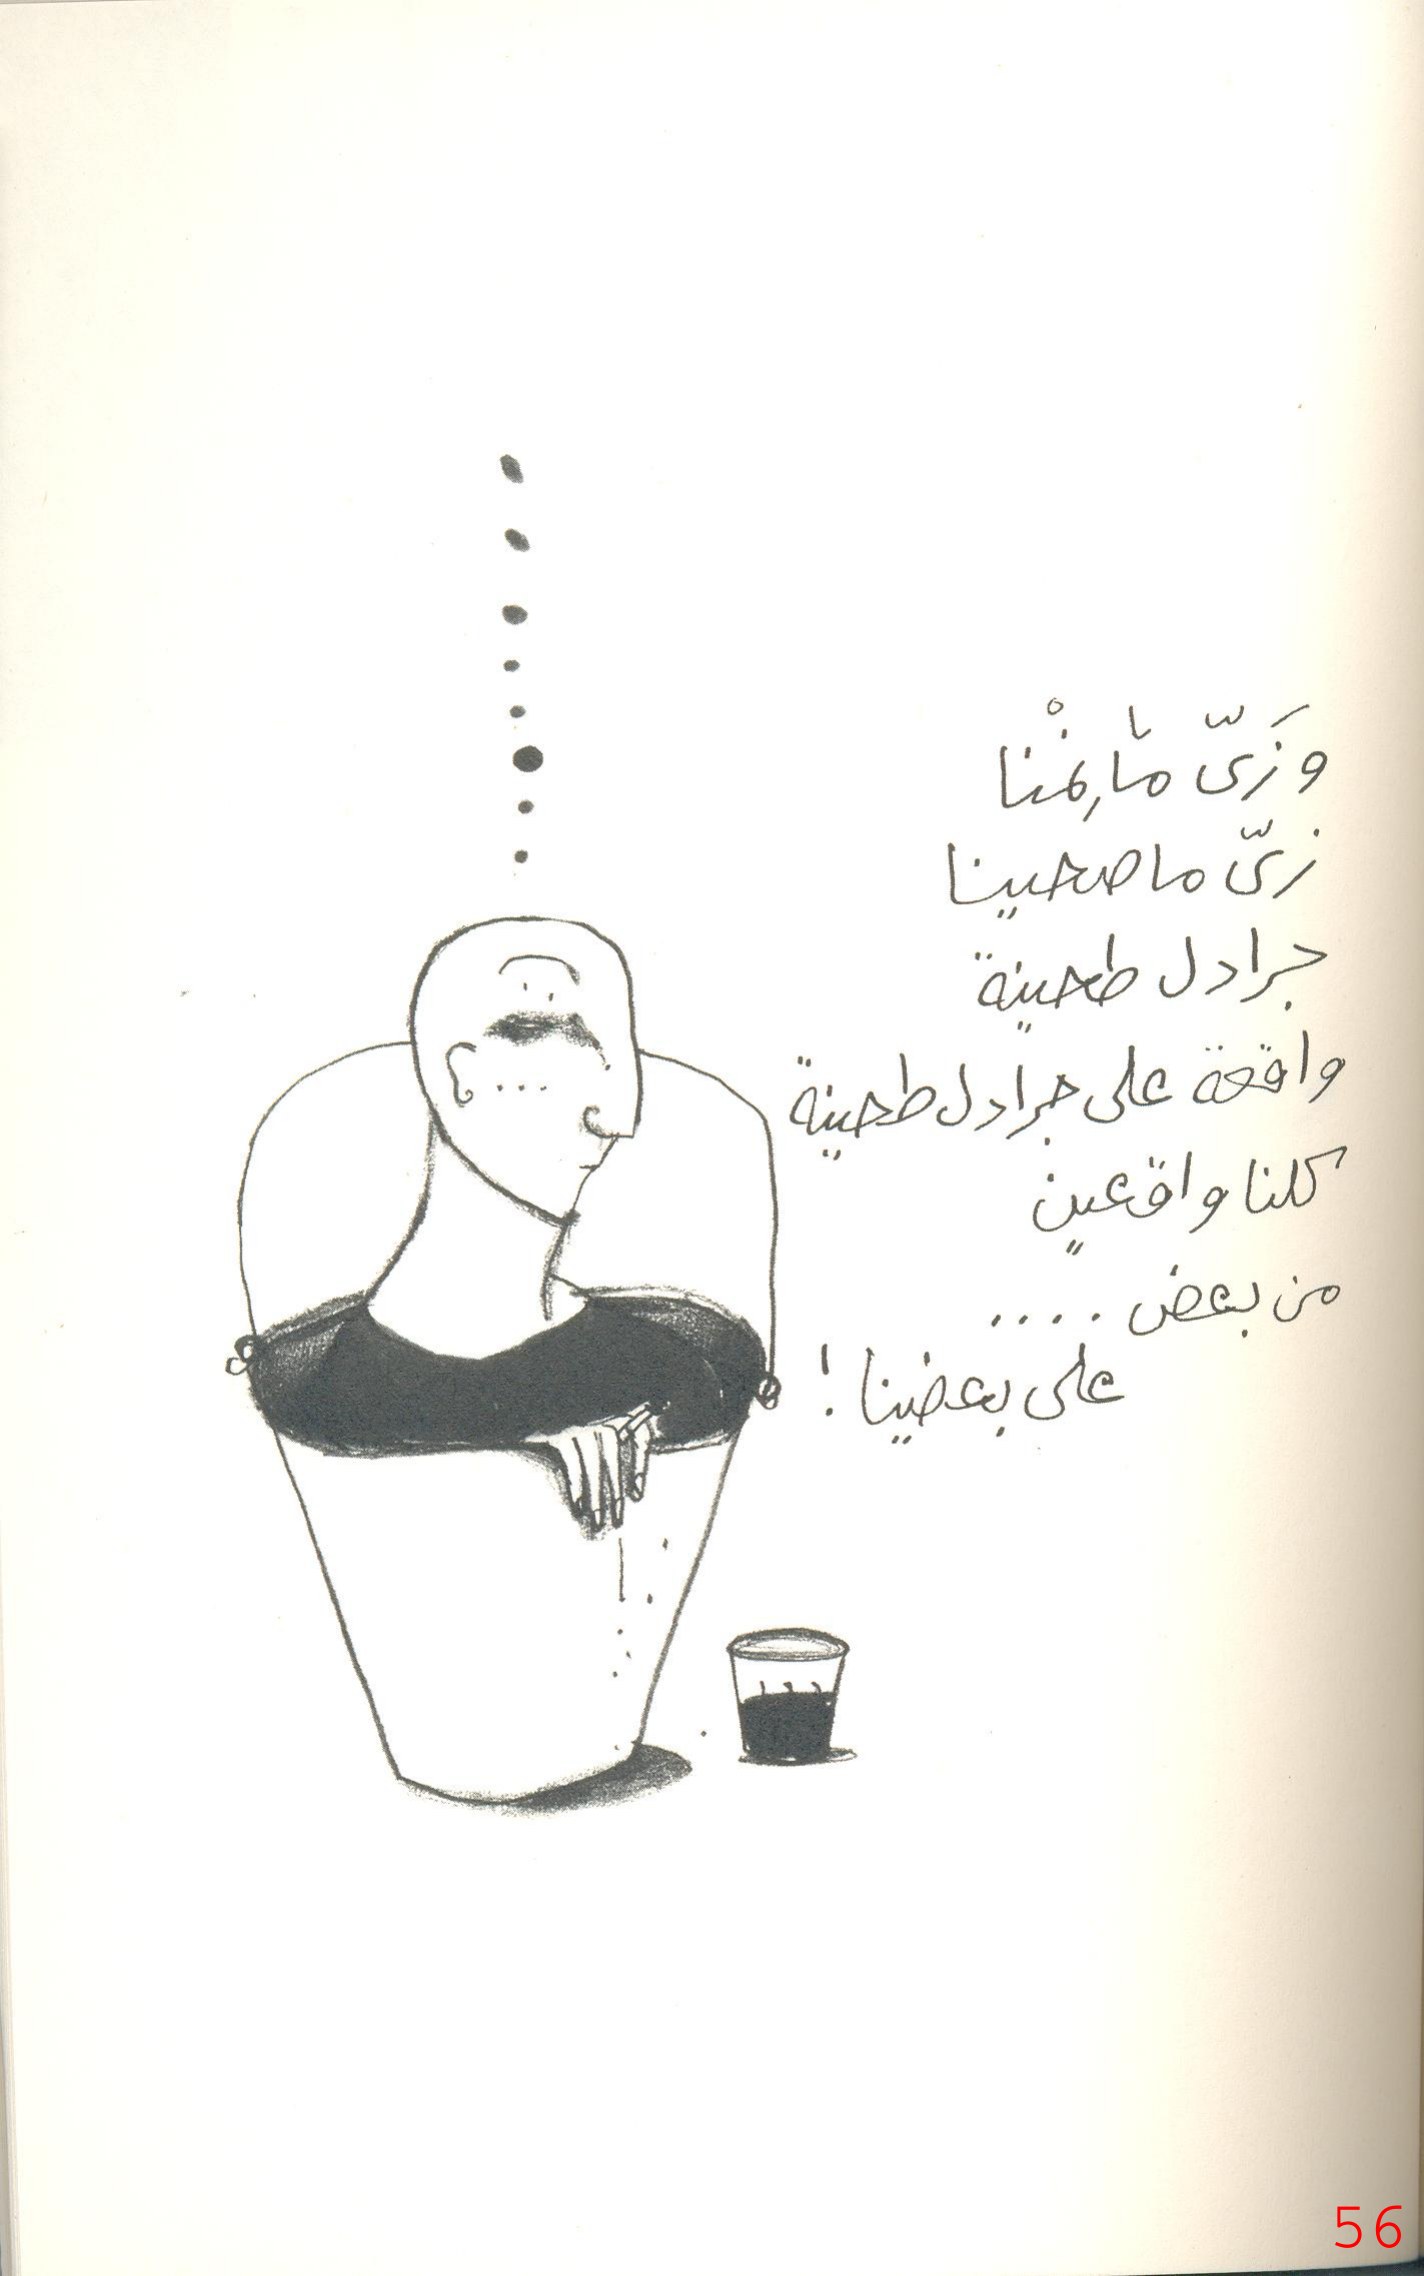 وَزَىّ مَا نِمْنَا
زىّ ما صحينا
جرادل طحينة
واقعة على جرادل طحينة
كلنا واقعين
من بعض ....
على بعضينا !
56